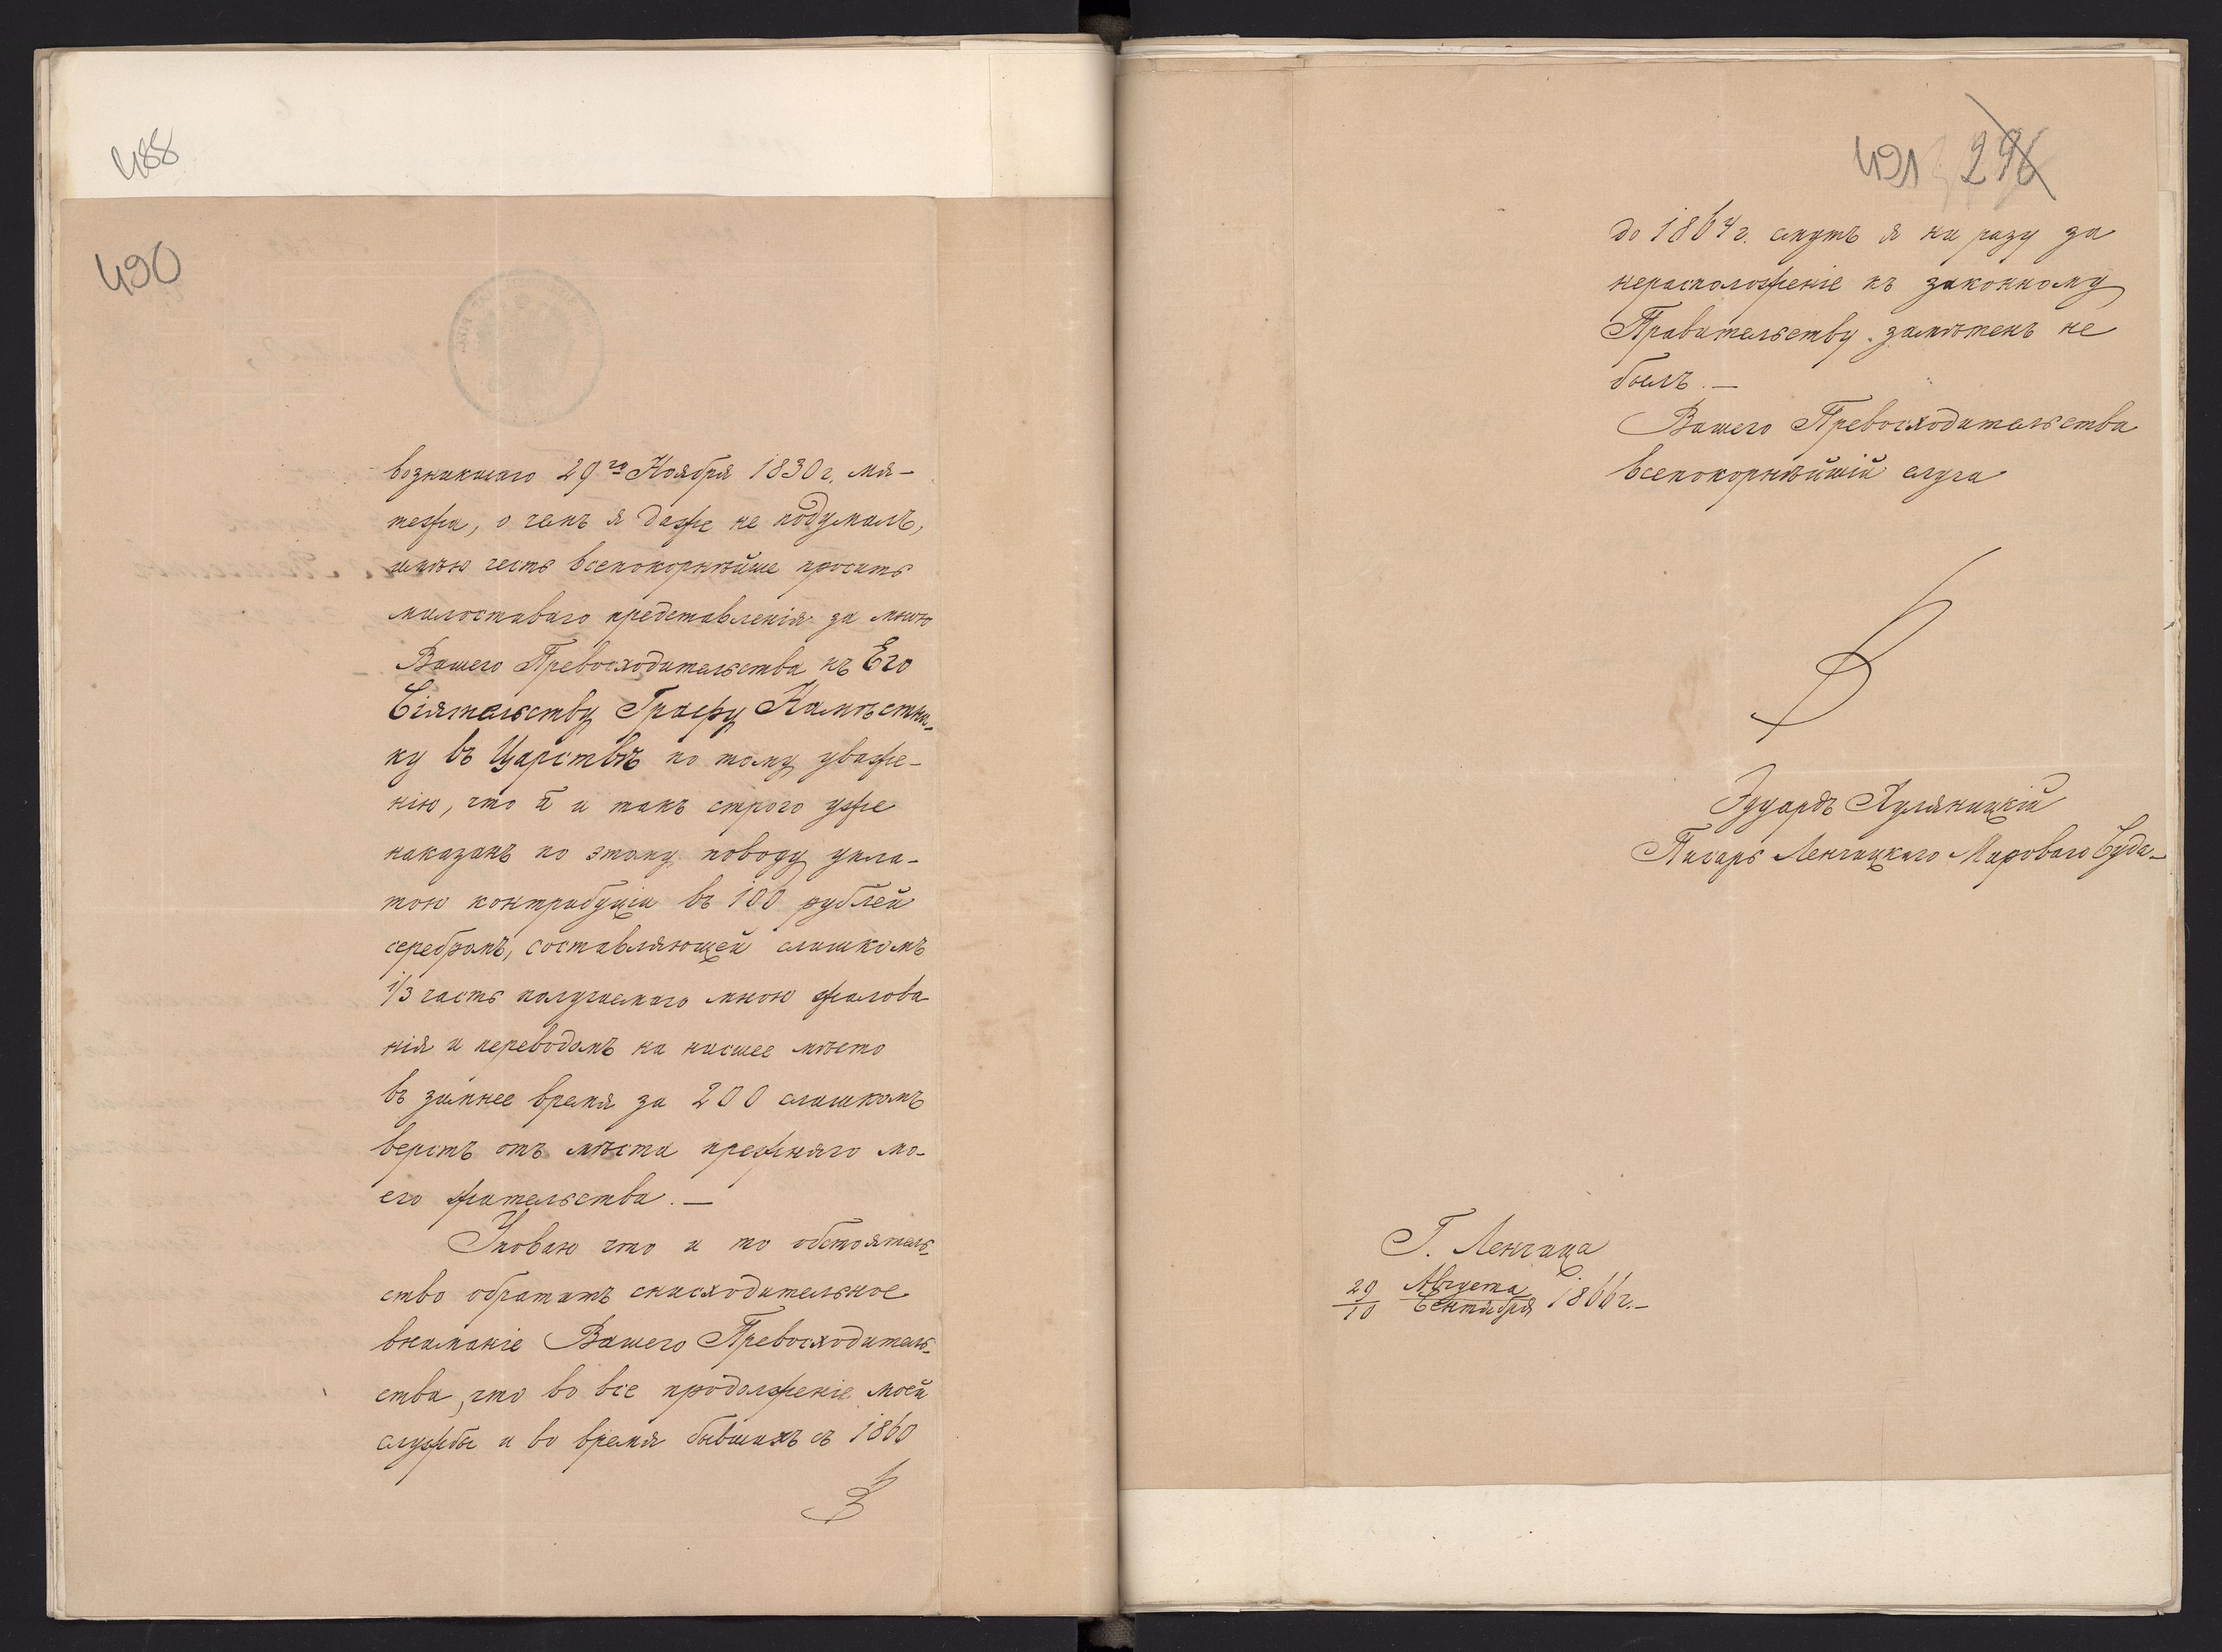 488
490
возникшаго 29го Ноября 1830 г. мя-
тежа, о чемъ я даже не подумалъ,
имѣю честь всепокорнѣйше просить
милостиваго представленія за мною
Вашего Превосходительства къ Его
Сіятельству Графу Намѣстни-
ку въ Царствѣ по тому уваже-
нію, что я и такъ строго уже
наказанъ по этому поводу упла-
тою контрибуціи въ 100 рублей
серебромъ, составляющей слишкомъ
1/3 часть получаемаго мною жалова
нія и переводомъ на нисшее мѣсто
въ зимнее время за 200 слишкомъ
верстъ отъ мѣста прежняго мо-
его жительства. —
Уповаю что и то обстоятель-
ство обратитъ снисходительное
вниманіе Вашего Превосходитель-
ства, что во все продолженіе моей
службы и во время бывшихъ съ 1860
491 296
до 1864 г. смутъ я ни разу за
нерасположеніе къ законному
Правительству замѣтенъ не
былъ. —
Вашего Превосходительства
всепокорнѣйшій слуга
Эдуардъ Куляницкій
Писарь Ленчицкаго Мироваго Суда -
Г. Ленчица
29/10 Августа/Сентября 1866 г. -